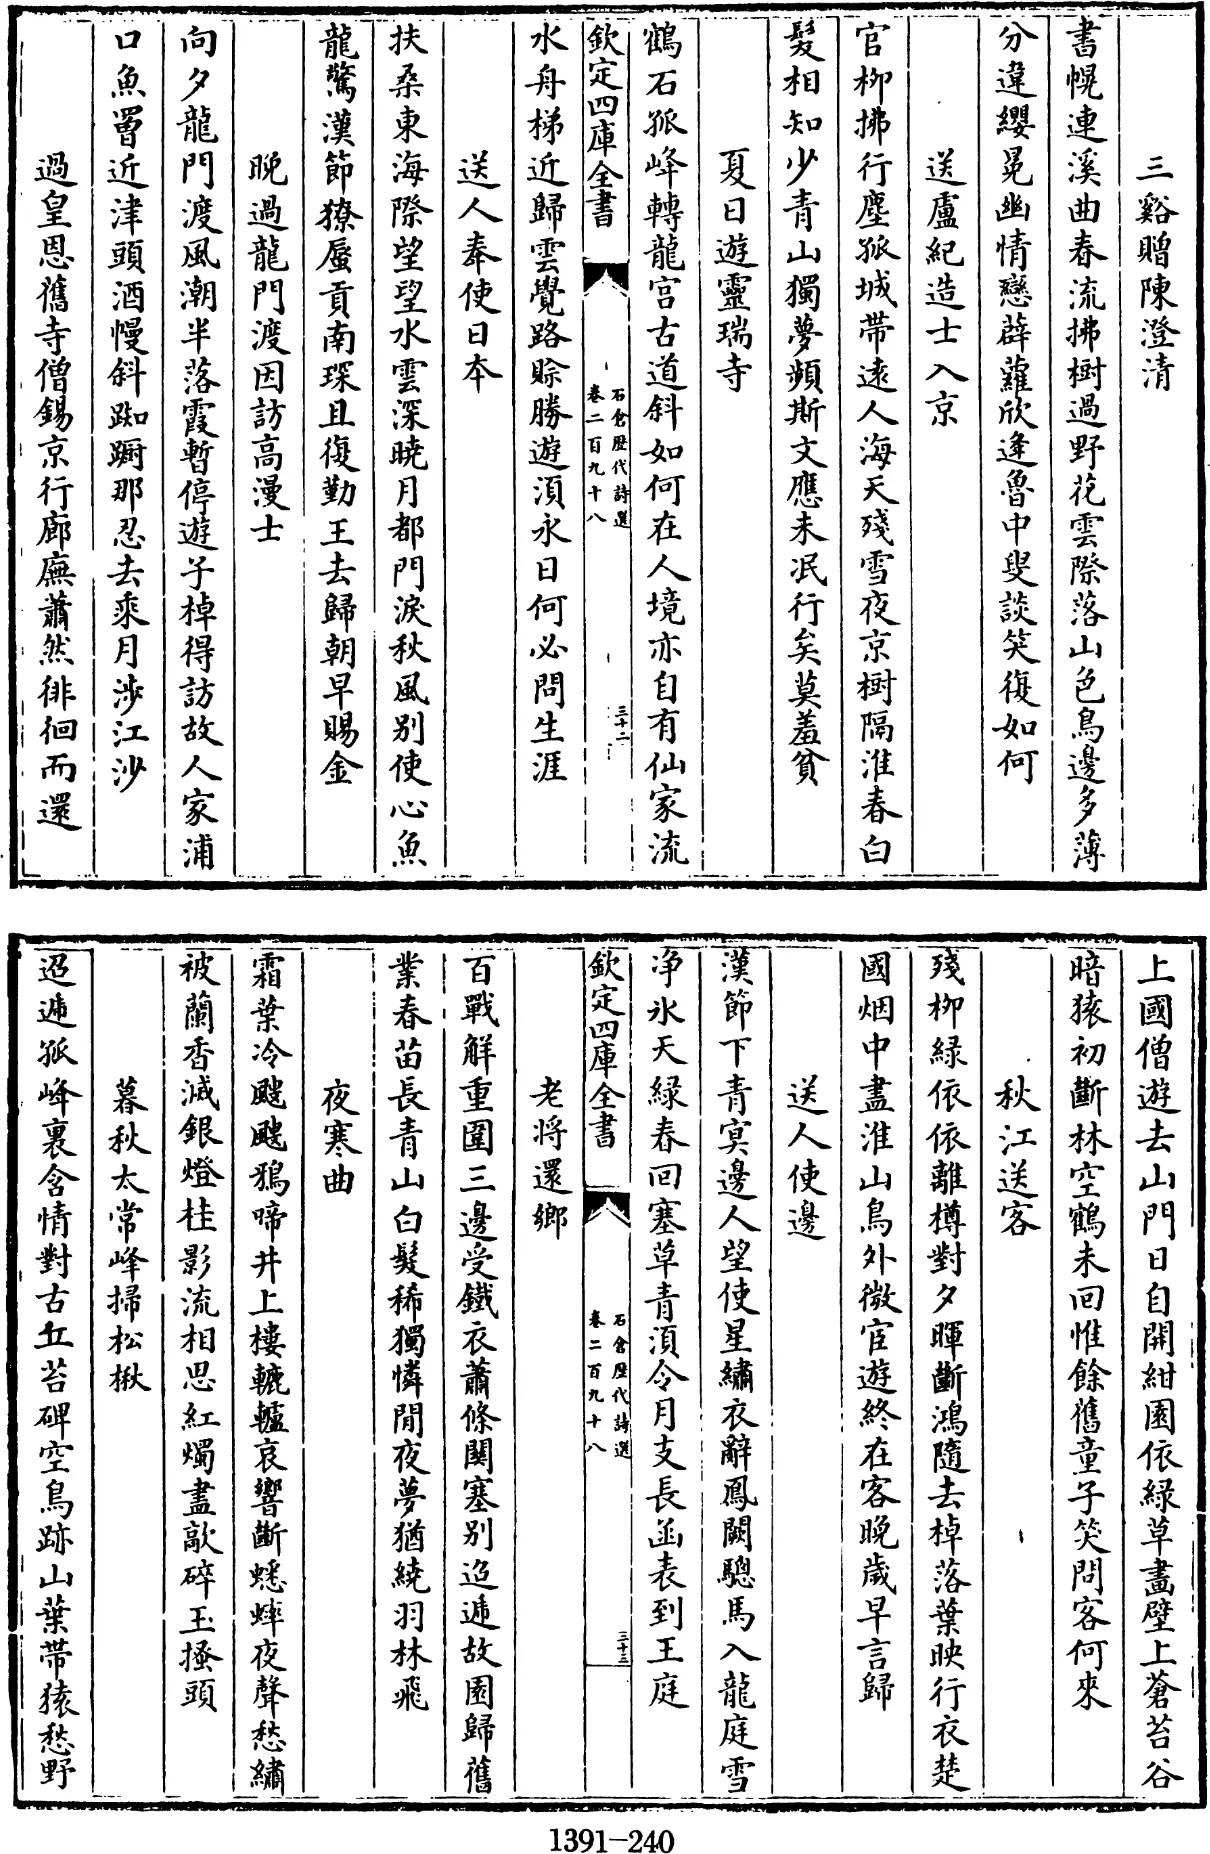 三谿贈陳澄清
書幌連溪曲春流拂樹過野花雲際落山色鳥邊多薄
分違纓冕幽情戀薜蘿欣逢魯中叟談笑復如何
送盧紀造士入京
官柳拂行塵孤城帶遠人海天殘雪夜京樹隔淮春白
髮相知少青山獨夢頻斯文應未泯行矣莫羞貧
夏日遊靈瑞寺
鶴石孤峰轉龍宮古道斜如何在人境亦自有仙家流
欽定四庫全書
石倉歷代詩選
卷二百九十八
三十二
水舟梯近歸雲覺路賒勝遊須永日何必問生涯
送人奉使日本
扶桑東海際望望水雲深曉月都門淚秋風別使心魚
龍驚漢節獠蜑貢南琛且復勤王去歸朝早賜金
晚過龍門渡因訪高漫士
向夕龍門渡風潮半落霞暫停遊子棹得訪故人家浦
口魚罾近津頭酒慢斜踟蹰那忍去乘月涉江沙
過皇恩舊寺僧錫京行廊廡蕭然徘徊而還
上國僧遊去山門日自開紺園依綠草畫壁上蒼苔谷
暗猿初斷林空鶴未回惟餘舊童子笑問客何來
秋江送客
殘柳綠依依離樽對夕暉斷鴻隨去棹落葉映行衣楚
國烟中盡淮山鳥外微宦遊終在客晚歲早言歸
送人使邊
漢節下青冥邊人望使星繡衣辭鳳闕驄馬入龍庭雪
净氷天綠春回塞草青須令月支長函表到王庭
欽定四庫全書
石倉歷代詩選
卷二百九十八
三十三
老將還鄉
百戰解重圍三邊受鐵衣蕭條關塞別迢遞故園歸舊
業春苗長青山白髮稀獨憐閒夜夢猶繞羽林飛
夜寒曲
霜葉冷颼颼鴉啼井上樓轆轤哀響斷蟋蟀夜聲愁繡
被蘭香滅銀燈桂影流相思紅燭盡敲碎玉搔頭
暮秋太常峰掃松楸
迢遞孤峰裏含情對古丘苔碑空鳥跡山葉帶猿愁野
1391-240